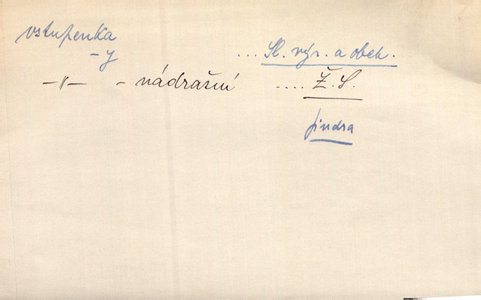 vstupenka
-y ... Sl. výr. a obch.
-"- - nádražní .... Ž. S.
Jindra